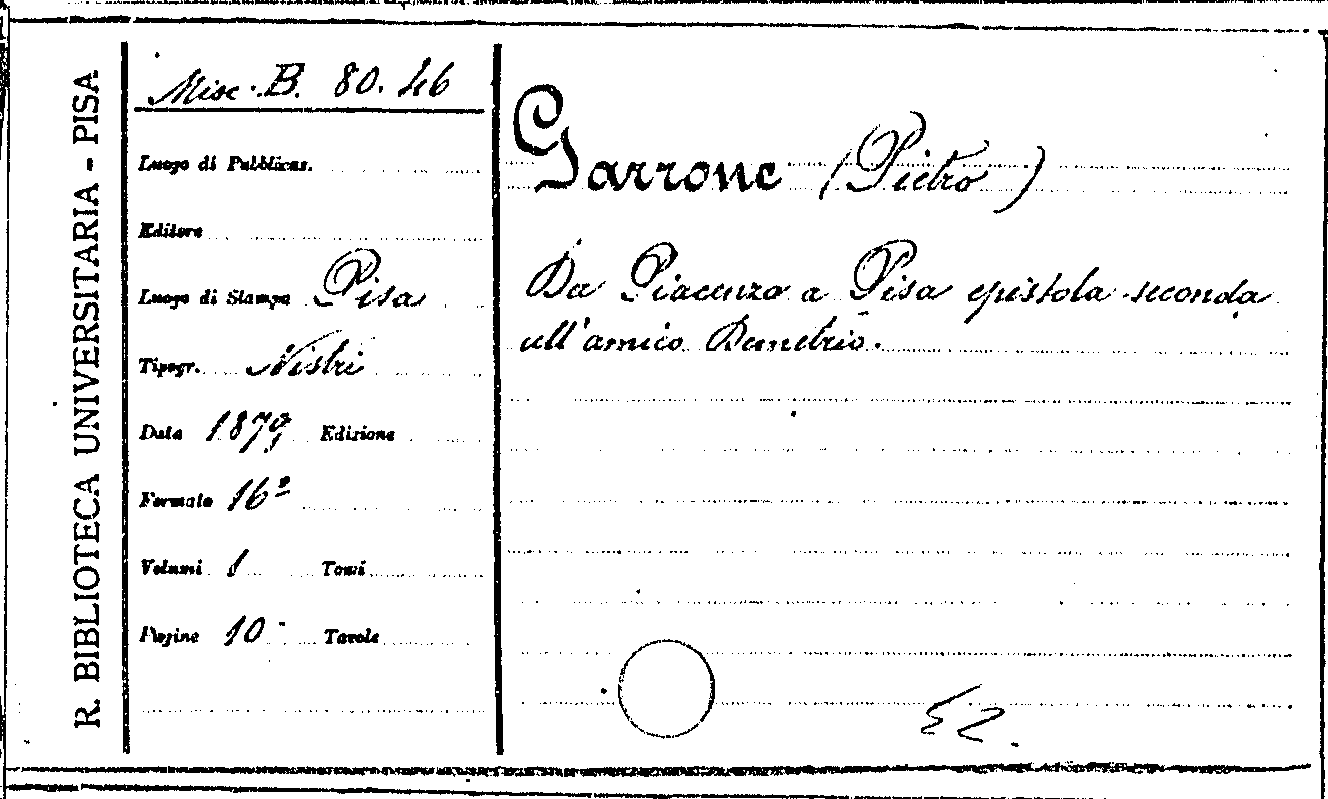 R. BIBLIOTECA UNIVERSITARIA - PISA
Misc. B. 80. 46
Luogo di Pubblicaz.
Editore
Luogo di Stampa Pisa
Tipogr. Nistri
Data 1879 Edizione
Formato 16º
Volumi 1 Tomi
Pagine 10 Tavole
Garrone (Pietro)
Da Piacenza a Pisa epistola seconda
all'amico Demetrio.